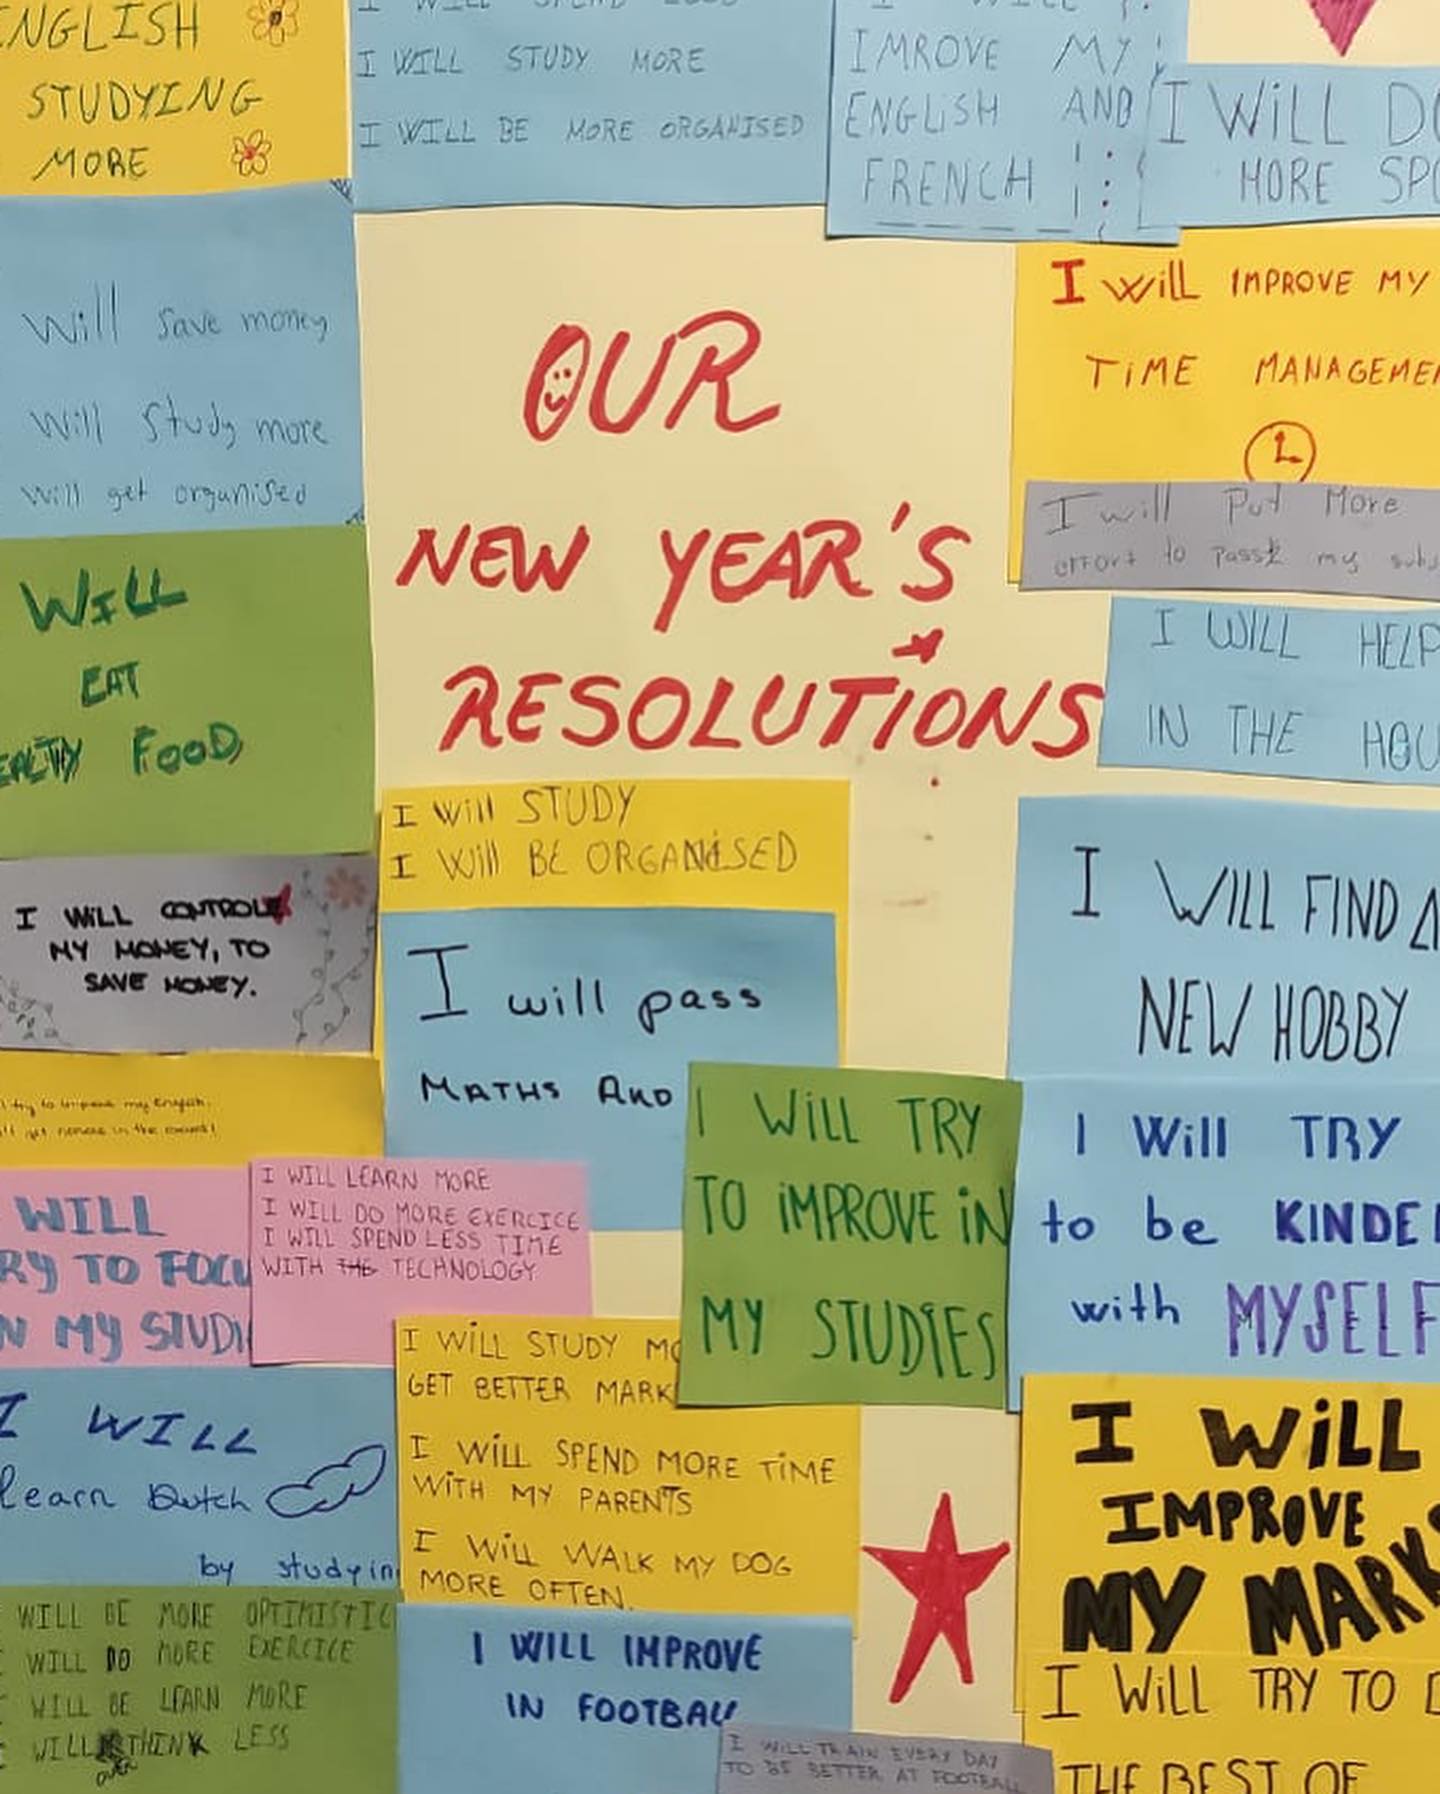 ENGLISH
STUDYING
MORE
I WILL SPEND LESS
I WILL STUDY MORE
I WILL BE MORE ORGANISED
I WILL
IMROVE MY
ENGLISH AND
FRENCH
I WiLL DO
MORE SPO
Will save money
Will Study more
Will get organised
OUR
NEW YEAR'S
RESOLUTIONS
I Will IMPROVE MY
TiME MANAGEMEN
I will Put More
effort to Pass my subj
I WILL HELP
IN THE HOU
WILL
EAT
EALTY FOOD
I Will STUDY
I Will BE ORGANiSED
I WiLL CONTROL
MY MONEY, TO
SAVE MONEY.
I will pass
MATHS AND
I WILL FIND A
NEW HOBBY
try to improve my English.
I WiLL TRY
TO iMPROVE iN
MY STUDiES
I Will TRY
to be KINDER
with MYSELF
WILL
RY TO FOCU
N MY STUDI
I WILL LEARN MORE
I WILL DO MORE EXERCICE
I WILL SPEND LESS TIME
WITH THE TECHNOLOGY
I WILL STUDY MO
GET BETTER MARK
I WiLL SPEND MORE TiME
WiTH MY PARENTS
I WiLL WALK MY DOG
MORE OFTEN.
I WILL
learn Dutch
by studyin
I WiLL
IMPROVE
MY MARKS
WILL BE MORE OPTIMISTIC
I WILL DO MORE EXERCICE
I WILL BE LEARN MORE
I WILL THINK LESS
over
I WILL IMPROVE
IN FOOTBALL
I WILL TRAIN EVERY DAY
TO BE BETTER AT FOOTBALL
I WiLL TRY TO
THE BEST OF